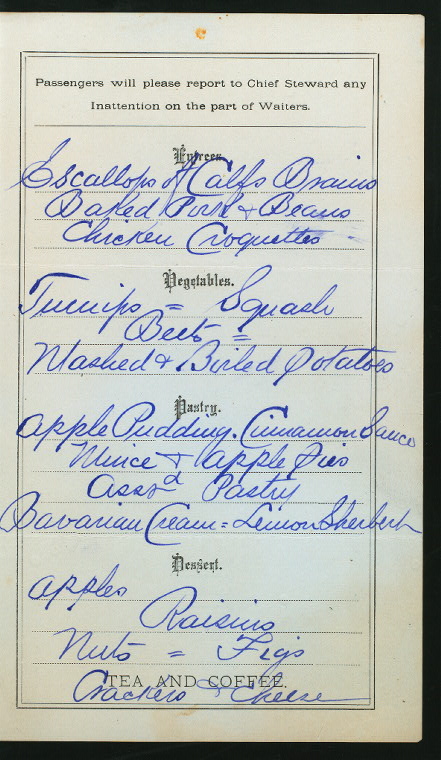 Passengers will please report to Chief Steward any
Inattention on the part of Waiters.
Entrees.
Escallops of Calfs Brains
Baked Pork & Beans
Chicken Croquettes
Vegetables.
Turnips = Squash
Beets =
Mashed & Boiled Potatoes
Pastry.
Apple Pudding. Cinnamon Sauce
Mince & Apple Pies
Assd Pastry
Bavarian Cream = Lemon Sherbert
Dessert.
Apples
Raisins
Nuts = Figs
TEA AND COFFEE.
Crackers & Cheese